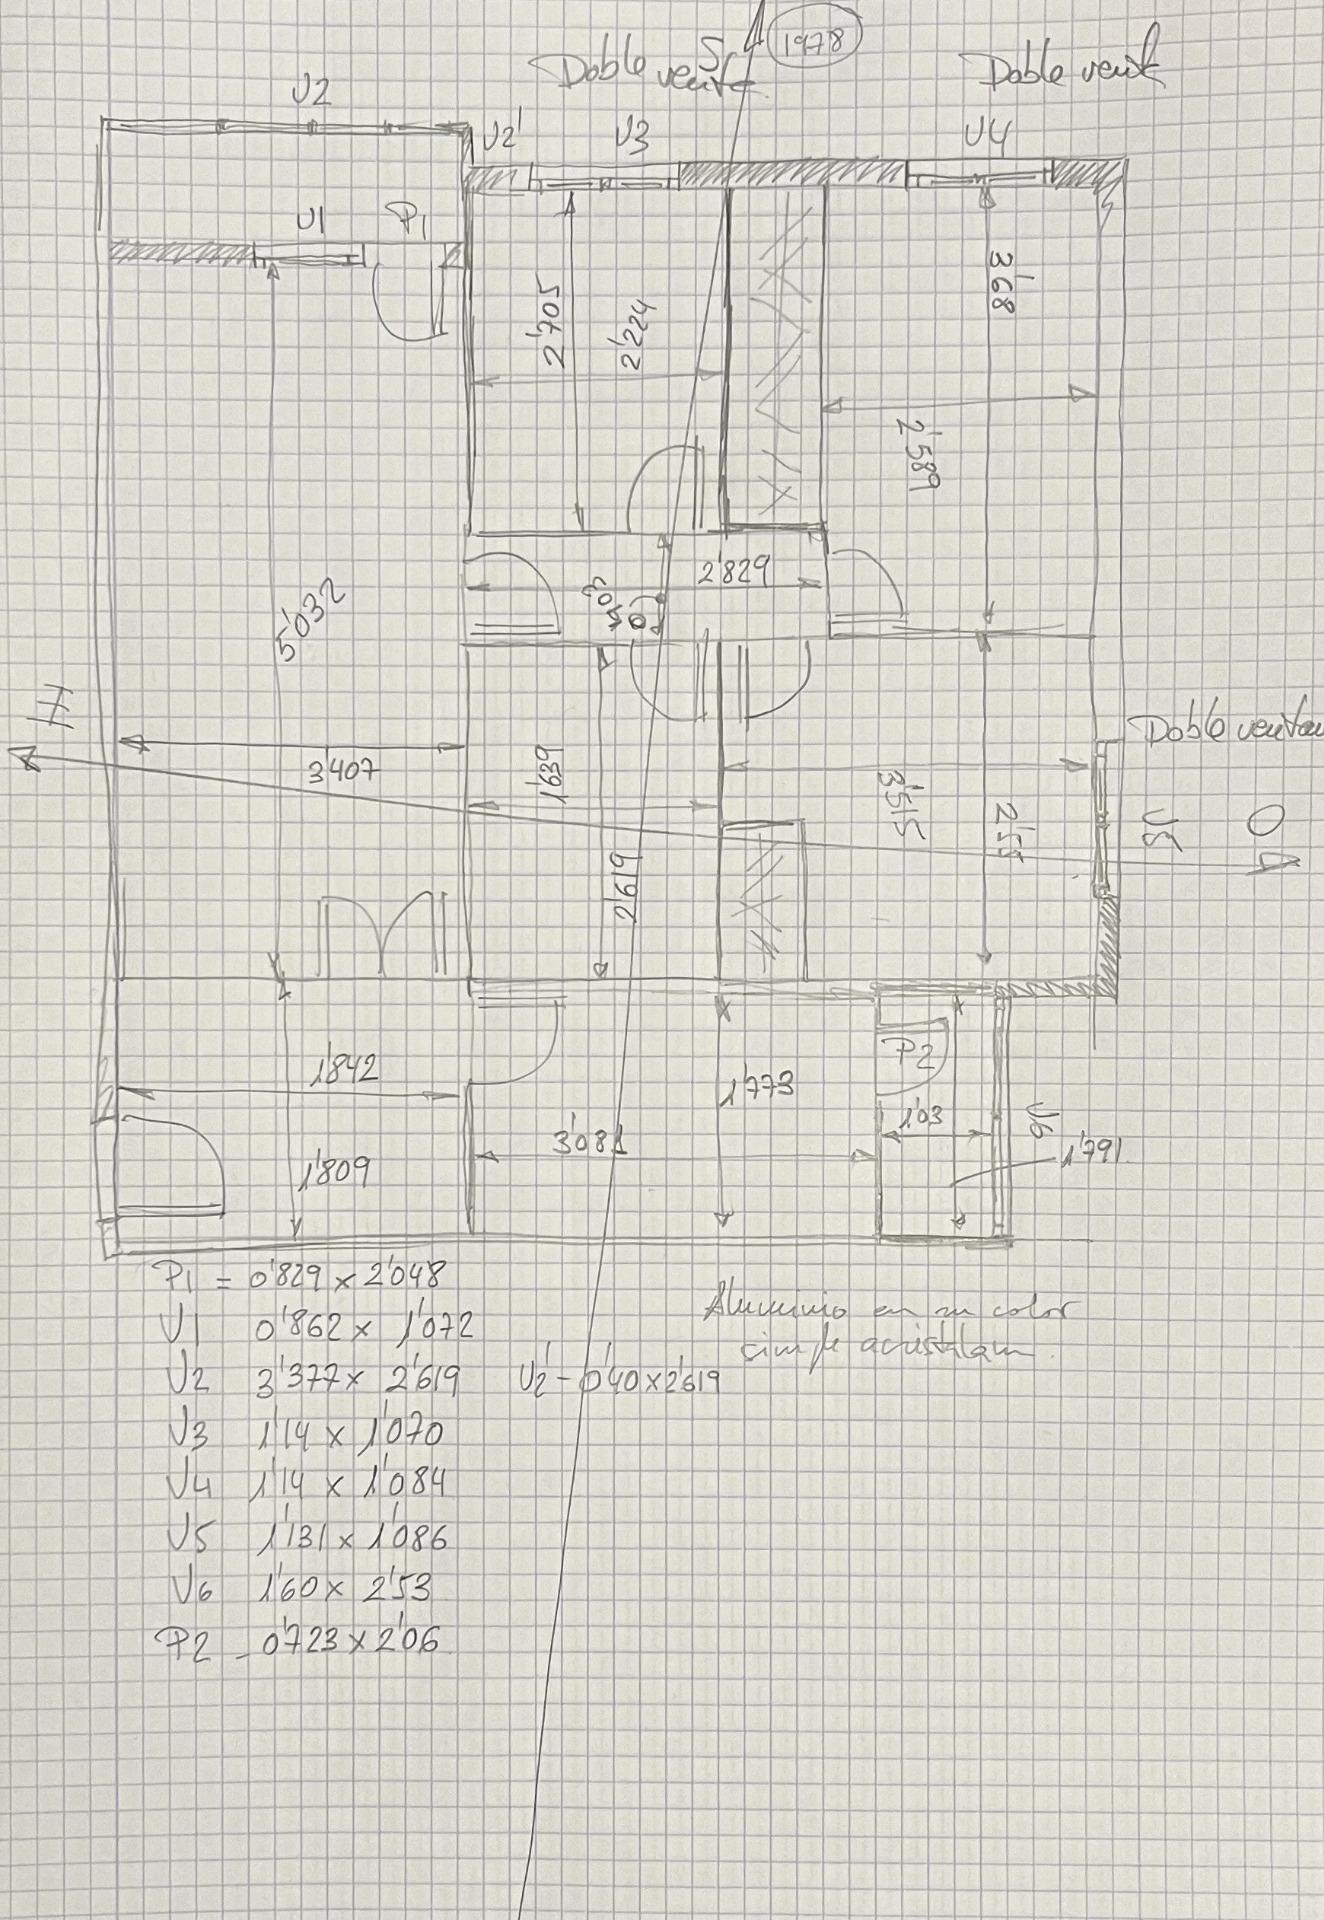 S
1978
Doble vent
Doble vent
V2
V2'
V3
V4
V1
P1
2'705
2'224
3'68
2'589
2'829
5'032
3'407
1'639
2'619
3'515
2'55
Doble ventan
V5
O
1'842
1'809
3'081
1'773
P2
1'03
V6
1'791
P1 = 0'829 x 2'048
V1 0'862 x 1'072
V2 3'377 x 2'619 V2' - 0'40 x 2'619
V3 1'14 x 1'070
V4 1'14 x 1'084
V5 1'131 x 1'086
V6 1'60 x 2'53
P2 - 0'723 x 2'06
Aluminio en su color
simple acristalam.